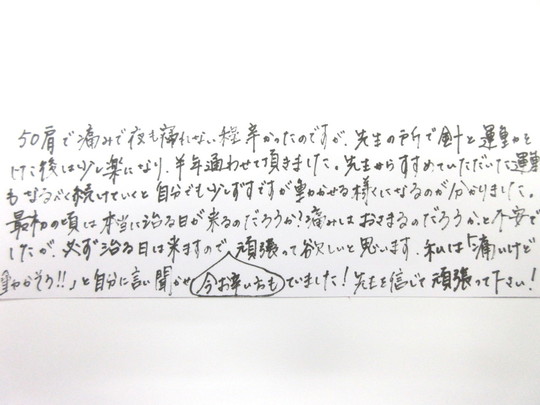 50肩で痛みで夜も寝れない程辛かったのですが、先生の所で針と運動を
した後は少し楽になり、半年通わせて頂きました。先生からすすめていただいた運動
もなるべく続けていくと自分でも少しずつですが動かせる様になるのが分かりました。
最初の頃は本当に治る日が来るのだろうか?痛みはおさまるのだろうか、と不安で
したが、必ず治る日は来ますので、頑張って欲しいと思います。私は「痛いけど
動かそう!!」と自分に言い聞かせ 今お辛い方も でいました!先生を信じて頑張って下さい!